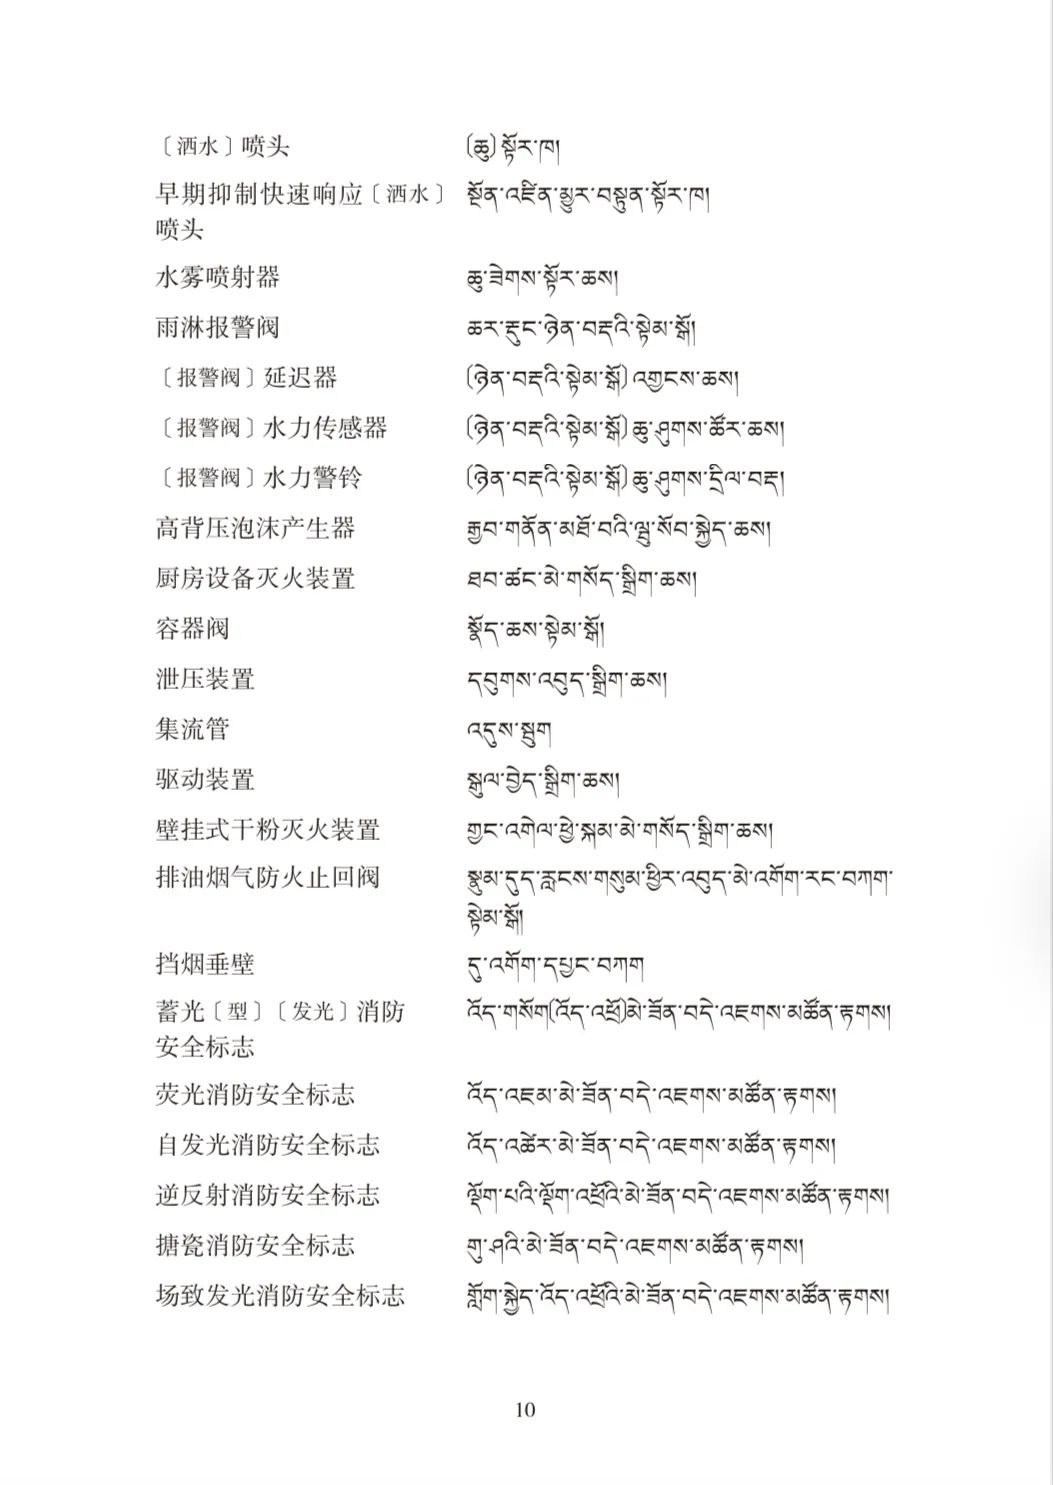 〔洒水〕喷头 (ཆུ) སྟོར་ཁ།
早期抑制快速响应〔洒水〕 སྔོན་འཛིན་མྱུར་བསྟུན་སྟོར་ཁ།
喷头
水雾喷射器 ཆུ་ཟེགས་སྟོར་ཆས།
雨淋报警阀 ཆར་རྡུང་ཉེན་བརྡའི་སྟེམ་སྒོ།
〔报警阀〕延迟器 (ཉེན་བརྡའི་སྟེམ་སྒོ) འགྱངས་ཆས།
〔报警阀〕水力传感器 (ཉེན་བརྡའི་སྟེམ་སྒོ) ཆུ་ཤུགས་ཚོར་ཆས།
〔报警阀〕水力警铃 (ཉེན་བརྡའི་སྟེམ་སྒོ) ཆུ་ཤུགས་དྲིལ་བརྡ།
高背压泡沫产生器 རྒྱབ་གནོན་མཐོ་བའི་ལྦུ་སོབ་སྐྱེད་ཆས།
厨房设备灭火装置 ཐབ་ཚང་མེ་གསོད་སྒྲིག་ཆས།
容器阀 སྣོད་ཆས་སྟེམ་སྒོ།
泄压装置 དབུགས་འབུད་སྒྲིག་ཆས།
集流管 འདུས་སྦུག
驱动装置 སྒུལ་བྱེད་སྒྲིག་ཆས།
壁挂式干粉灭火装置 གྱང་འགེལ་ཕྱེ་སྐམ་མེ་གསོད་སྒྲིག་ཆས།
排油烟气防火止回阀 སྣུམ་དུད་རླངས་གསུམ་ཕྱིར་འབུད་མེ་འགོག་རང་བཀག་
སྟེམ་སྒོ།
挡烟垂壁 དུ་འགོག་དཔྱང་བཀག
蓄光〔型〕〔发光〕消防 འོད་གསོག(འོད་འཕྲོ)མེ་ཟོན་བདེ་འཇགས་མཚོན་རྟགས།
安全标志
荧光消防安全标志 འོད་འཇམ་མེ་ཟོན་བདེ་འཇགས་མཚོན་རྟགས།
自发光消防安全标志 འོད་འཚེར་མེ་ཟོན་བདེ་འཇགས་མཚོན་རྟགས།
逆反射消防安全标志 ལྡོག་པའི་ལྡོག་འཕྲོའི་མེ་ཟོན་བདེ་འཇགས་མཚོན་རྟགས།
搪瓷消防安全标志 གུ་ཤའི་མེ་ཟོན་བདེ་འཇགས་མཚོན་རྟགས།
场致发光消防安全标志 གློག་སྐྱེད་འོད་འཕྲོའི་མེ་ཟོན་བདེ་འཇགས་མཚོན་རྟགས།
10